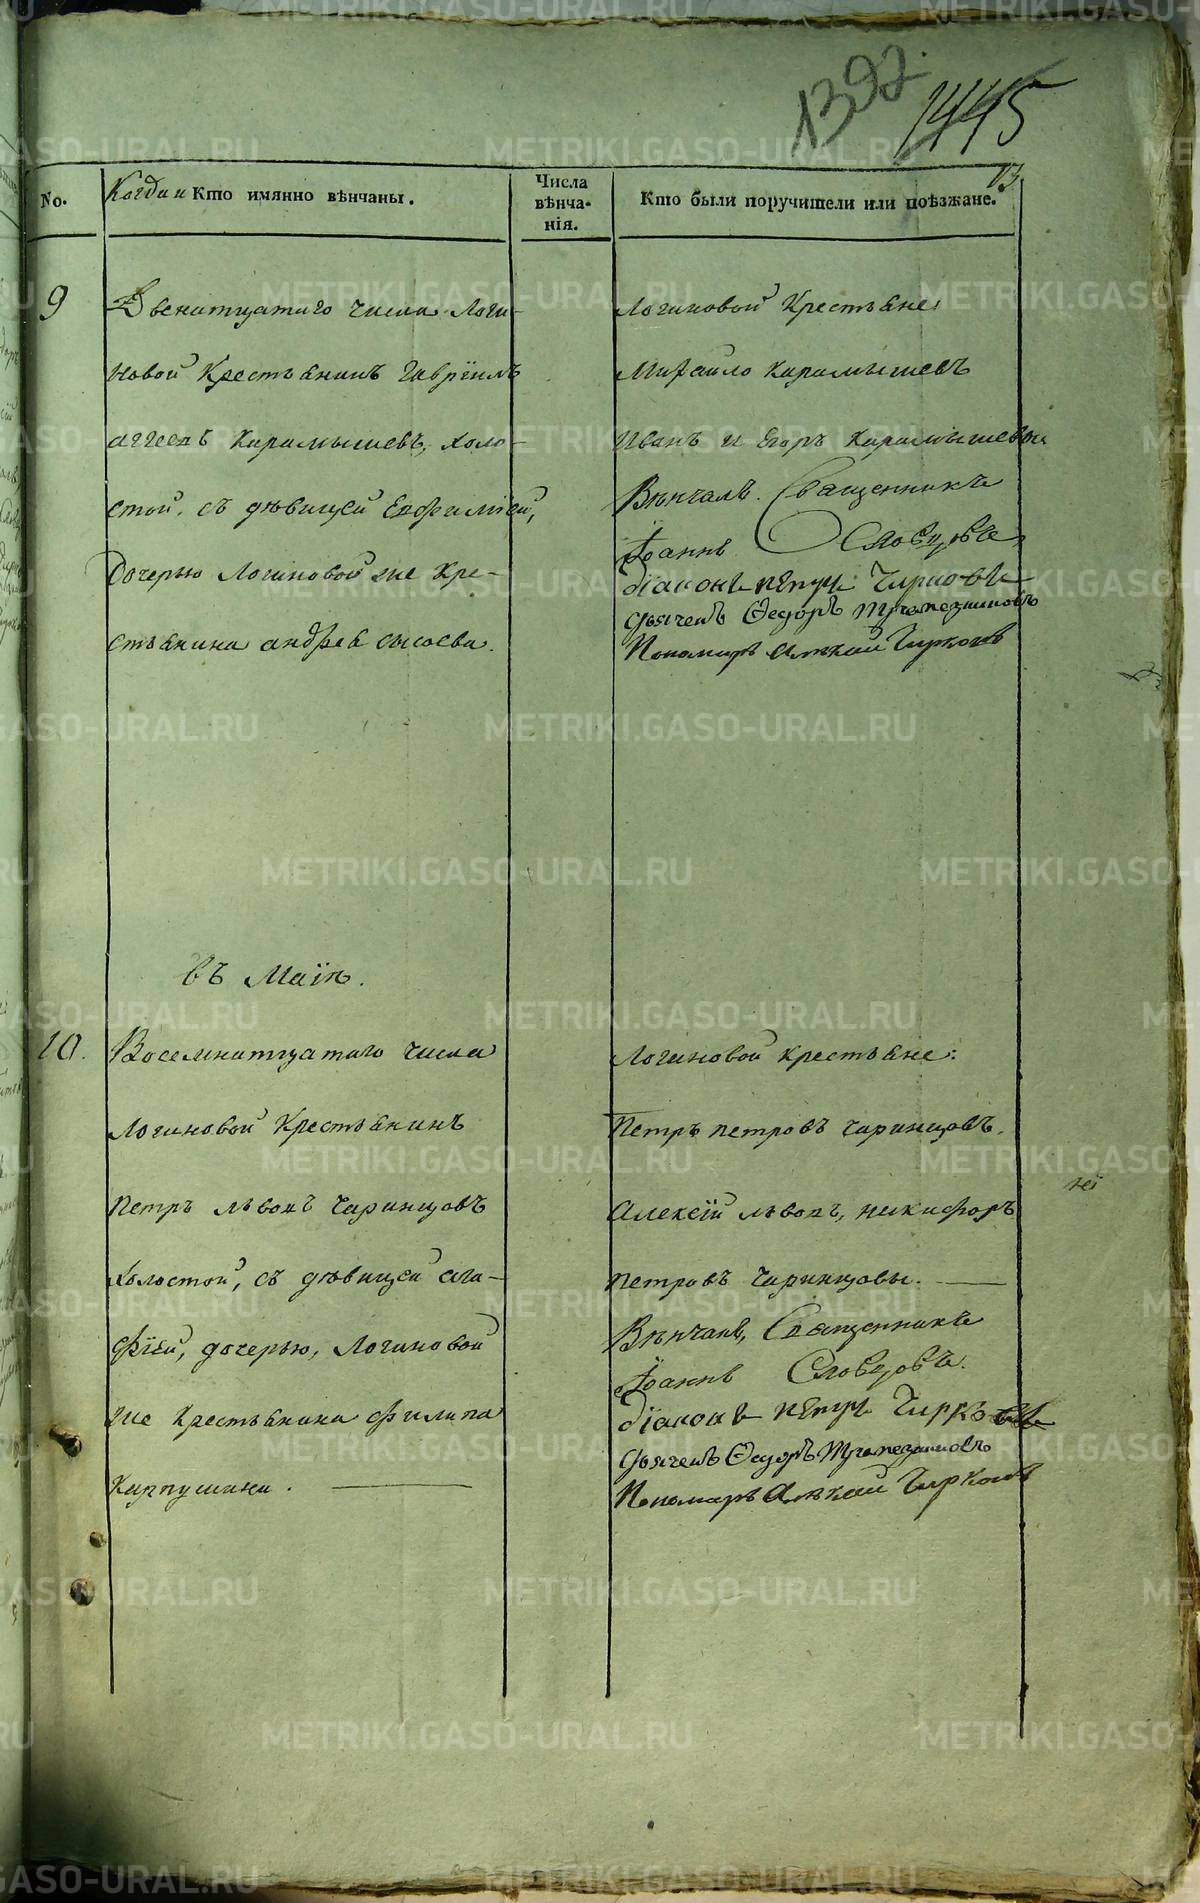 1392.
1445
13
No.
Когда и Кто имянно вѣнчаны.
Числа вѣнча-
нія.
Кто были поручители или поѣзжане.
9
Двенатцатаго числа Логи-
новой Крестьянинъ Гаврїилъ
Аггеевъ Карамышевъ, холо-
стой, съ дѣвицей Евфимїей,
Дочерью Логиновой же Кре-
стьянина Андрея Сысоева.
Логиновой Крестьяне,
Михайло Карамышевъ
Иванъ и Егоръ Карамышевы
Вѣнчалъ Священникъ
Їоаннъ Словцовъ,
Дїаконъ Петръ Чирковъ
Дьячекъ Ѳедоръ Трапезниковъ
Пономарь Алексѣй Чирковъ
въ Маїѣ.
10.
Восемнатцатаго числа
Логиновой Крестьянинъ
Петръ Львовъ Чаринцовъ
холостой, съ дѣвицей Ага-
фїей, дочерью, Логиновой
же Крестьянина Филипа
Карпушина.
Логиновой крестьяне:
Петръ Петровъ Чаринцовъ.
Алексїй Львовъ, Никифоръ
Петровъ Чаринцовы.
Вѣнчалъ, Священникъ
Їоаннъ Словцовъ.
Дїаконъ Петръ Чирковъ
Дьячекъ Ѳедоръ Трапезниковъ
Пономарь Алексѣй Чирковъ
METRIKI.GASO-URAL.RU